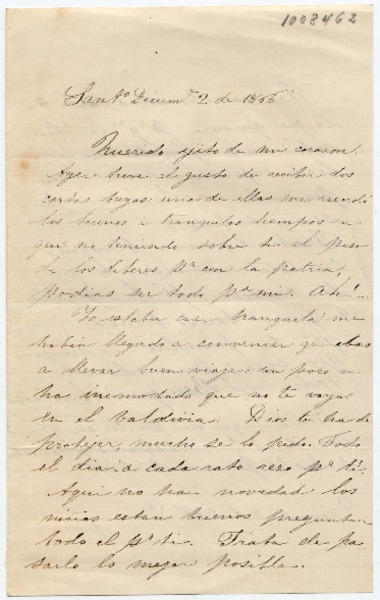 1008462
Sant.º Diciem.e 2 de 1865
Querido ojito de mi corazon.
Ayer tuve el gusto de recibir dos
cartas tuyas: una de ellas me recordó
los buenos i tranquilos tiempos en
que no teniendo sobre ti el peso
de los deberes p.a con la patria,
podias ser todo p.a mi. Ah!...
Yo estaba casi tranquila: me
habia llegado a convencer que ibas
a llevar buen viaje: un poco me
ha incomodado que no te vayas
en el Valdivia. Dios te ha de
protejer, mucho se lo pido. Todo
el dia a cada rato rezo p.r ti.
Aqui no hai novedad los
niños estan buenos preguntan
todo el p.r ti. Trata de pa
sarlo lo mejor posible.